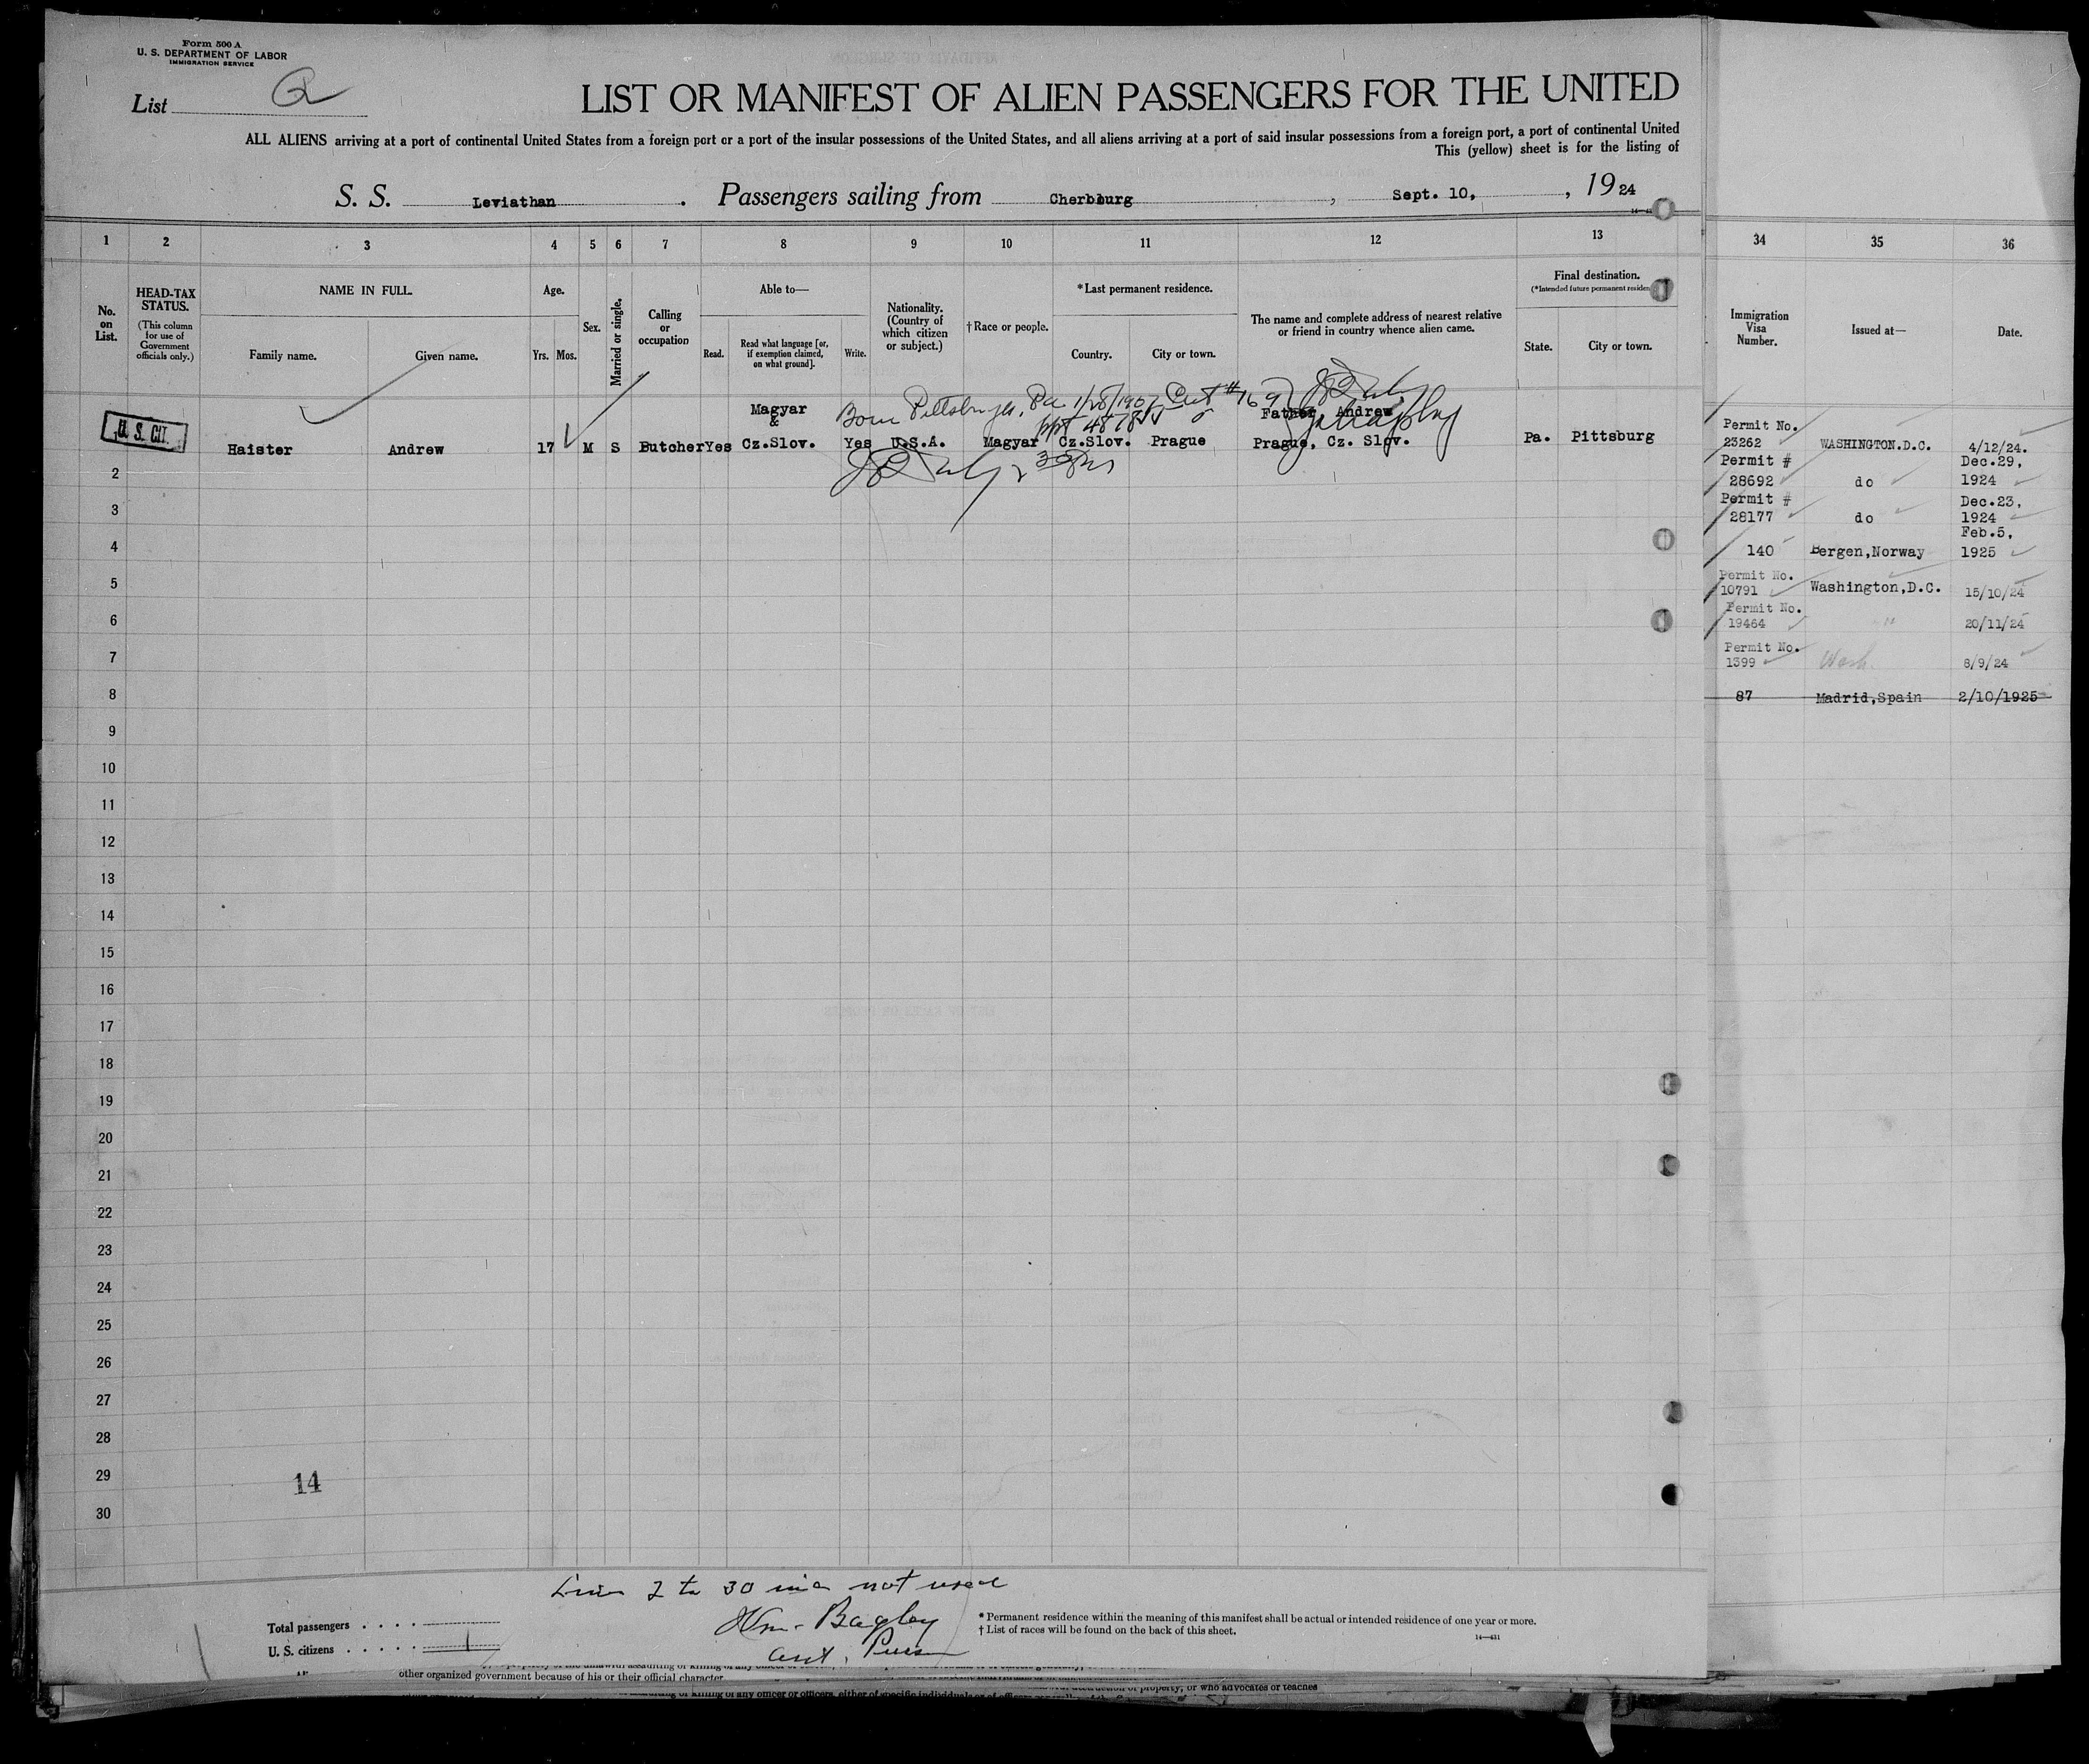 Form 500 A
U. S. DEPARTMENT OF LABOR
IMMIGRATION SERVICE
List Q
LIST OR MANIFEST OF ALIEN PASSENGERS FOR THE UNITED
ALL ALIENS arriving at a port of continental United States from a foreign port or a port of the insular possessions of the United States, and all aliens arriving at a port of said insular possessions from a foreign port, a port of continental United
This (yellow) sheet is for the listing of
S. S. Leviathan . Passengers sailing from Cherbourg , Sept. 10, , 19 24
1 2 3 4 5 6 7 8 9 10 11 12 13 34 35 36
No. on List.
HEAD-TAX STATUS.
(This column for use of Government officials only.)
NAME IN FULL.
Family name. Given name.
Age.
Yrs. Mos.
Sex.
Married or single.
Calling or occupation
Able to—
Read. Read what language [or, if exemption claimed, on what ground]. Write.
Nationality. (Country of which citizen or subject.)
†Race or people.
*Last permanent residence.
Country. City or town.
The name and complete address of nearest relative or friend in country whence alien came.
Final destination.
(*Intended future permanent residen
State. City or town.
Immigration Visa Number.
Issued at—
Date.
Born Pittsburgh, Pa 1/28/1907 Cert #169
Magyar & Father, Andrew
U. S. CIT. Haister Andrew 17 M S Butcher Yes Cz.Slov. Yes U.S.A. Magyar Cz.Slov. Prague Prague, Cz. Slov. Pa. Pittsburg
Permit No. 23262 WASHINGTON.D.C. 4/12/24.
2 Permit # 28692 do Dec.29, 1924
3 Permit # 28177 do Dec.23, 1924
4 140 Bergen,Norway Feb.5, 1925
5 Permit No. 10791 Washington,D.C. 15/10/24
6 Permit No. 19464 " 20/11/24
7 Permit No. 1399 Wash. 8/9/24
8 87 Madrid,Spain 2/10/1925
9
10
11
12
13
14
15
16
17
18
19
20
21
22
23
24
25
26
27
28
29
14
30
Lines 2 to 30 inc not used
Total passengers . . . .
Wm. Bagley
U. S. citizens . . . . . 1
* Permanent residence within the meaning of this manifest shall be actual or intended residence of one year or more.
† List of races will be found on the back of this sheet.
14—431
other organized government because of his or their official character
of property, or who advocates or teaches